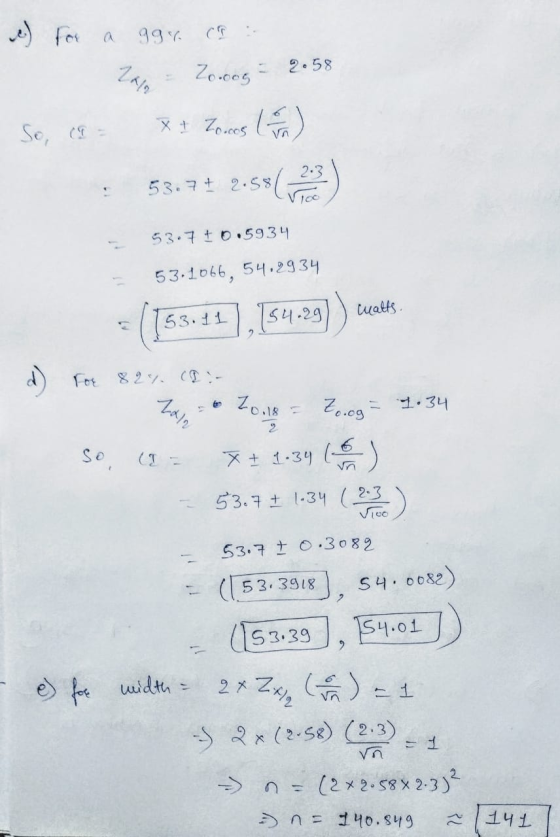 c) For a 99% CI :-
Zα/2 = Z0.005 = 2.58
So, CI = x̄ ± Z0.005 (σ/√n)
= 53.7 ± 2.58 (2.3/√100)
= 53.7 ± 0.5934
= 53.1066, 54.2934
= (53.11, 54.29) watts.
d) For 82% CI :-
Zα/2 = Z0.18/2 = Z0.09 = 1.34
So, CI = x̄ ± 1.34 (σ/√n)
= 53.7 ± 1.34 (2.3/√100)
= 53.7 ± 0.3082
= (53.3918, 54.0082)
= (53.39, 54.01)
e) for width = 2 × Zα/2 (σ/√n) = 1
→ 2 × (2.58) (2.3)/√n = 1
⇒ n = (2×2.58×2.3)²
⇒ n = 140.849 ≈ 141